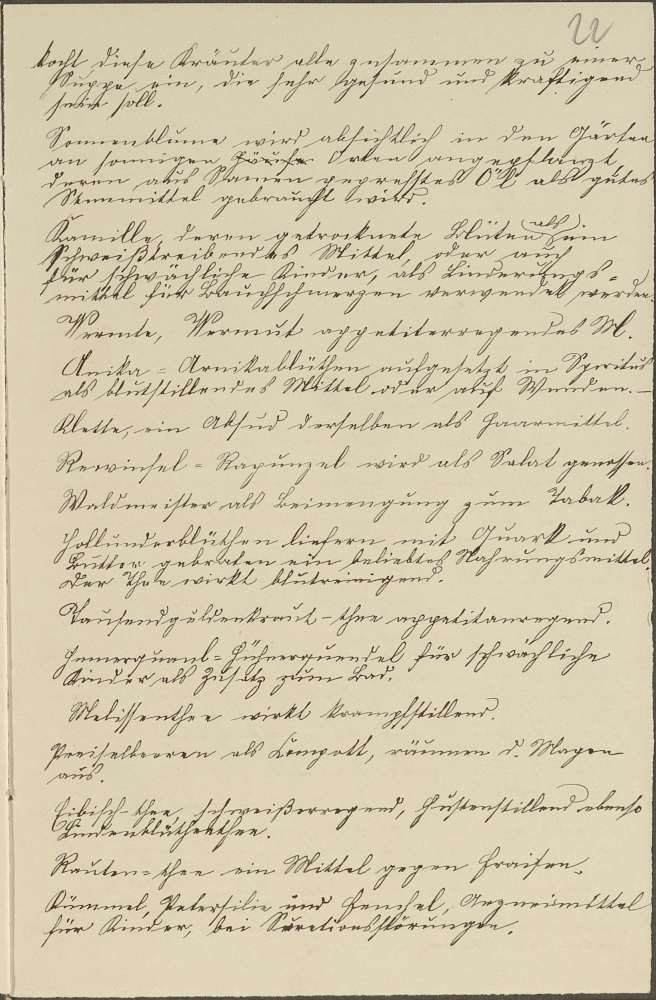 22
kocht diese Kräuter alle zusammen zu einer
Suppe ein, die sehr gesund und kräftigend
sein soll.
Sonnenblume wird absichtlich in den Gärten
an sonnigen Orten angepflanzt,
deren aus Samen gepresstes Öl als gutes
gebraucht wird.
Kamille, deren getrocknete Blüten als ein
Schweißtreibendes Mittel, oder auch
für schwächliche Kinder, als Linderungs-
mittel für Bauchschmerzen verwendet werden.
Wermte, Wermut appetiterregendes M.
Anika = Arnikablüthen aufgesetzt in Spiritus
als blutstillendes Mittel oder auf Wunden. –
Klette, ein Absud derselben als Haarmittel.
Rewinsel = Rapunzel wird als Salat genossen.
Waldmeister als Beimengung zum Tabak.
Hollunderblüthen liefern mit Quark und
Butter gebraten ein beliebtes Nahrungsmittel,
der Thee wirkt blutreinigend.
Tausendguldenkraut-thee appetitanregend.
Hühnerquendel für schwächliche
Kinder als Zusatz zum Bad.
Melissenthee wirkt krampfstillend.
Preiselbeeren als Kompott, räumen d. Magen
aus.
Eibisch-thee, schweißerregend, hustenstillend ebenso
Lindenblüthenthee.
Rauten-thee ein Mittel gegen Fraisen.
Kümmel, Petersilie und Fenchel, Arzneimittel
für Kinder, bei